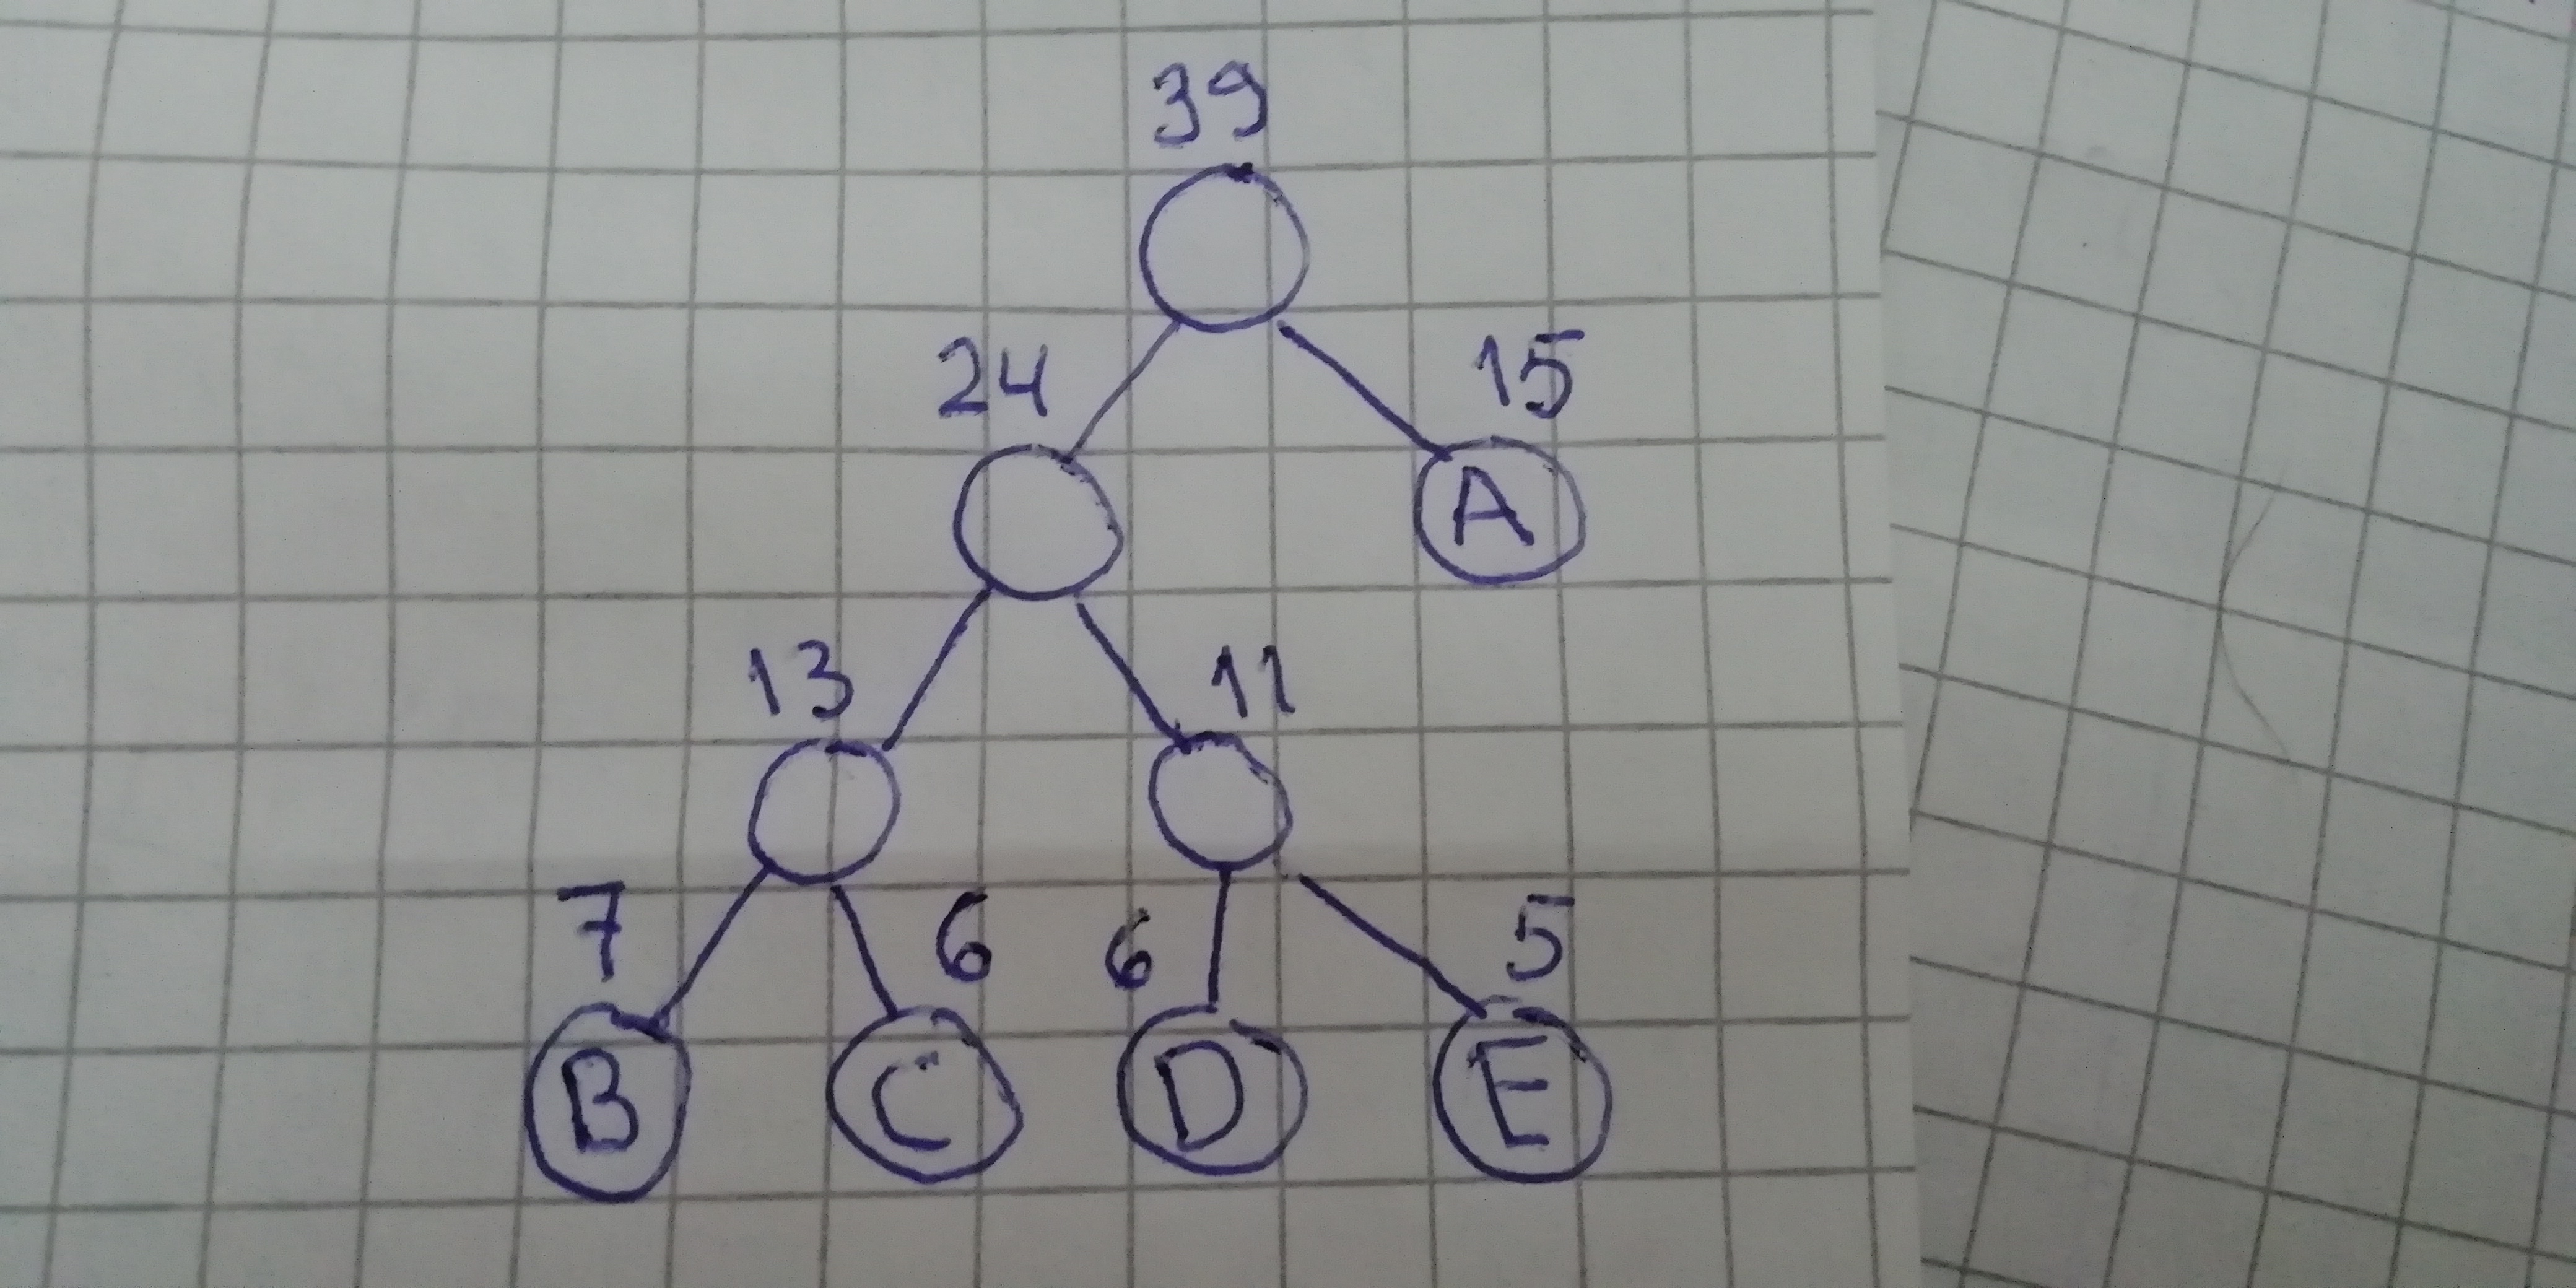 39
24 15
A
13 11
7 6 6 5
B C D E